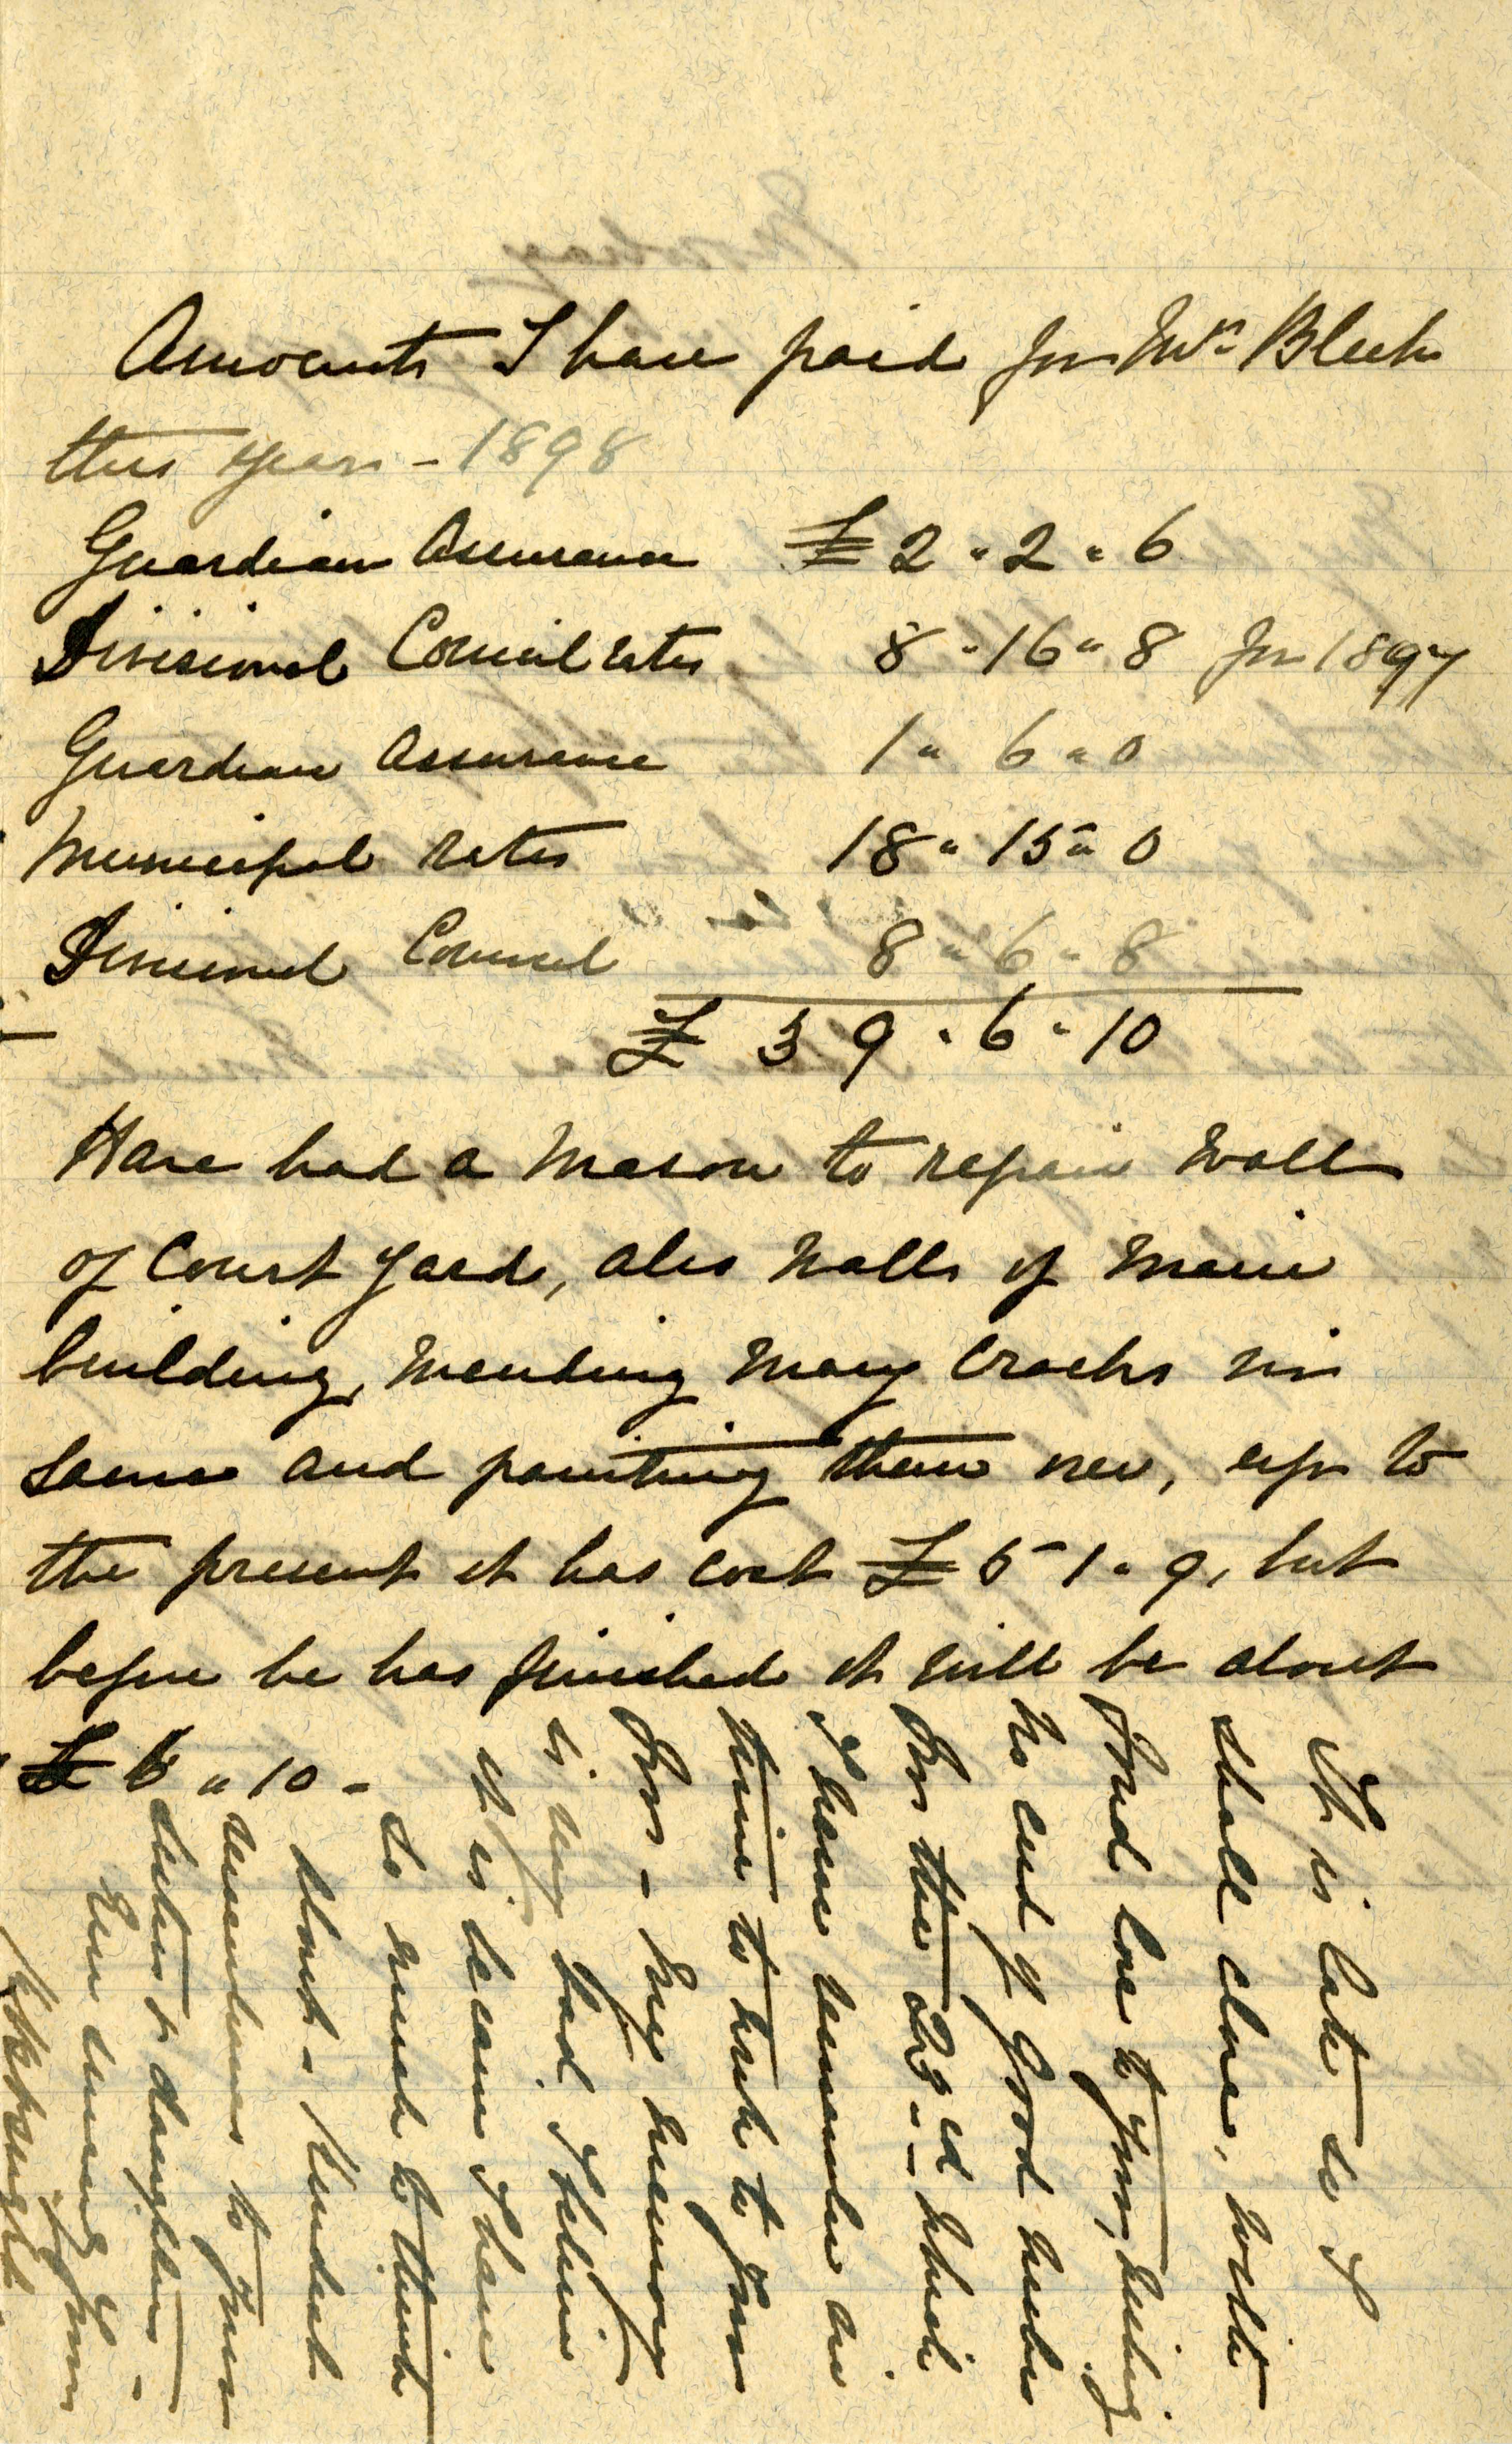 Amounts I have paid for Mrs Bleek
this year - 1898
Guardian Assurance £ 2 " 2 " 6
Divisional Council rates 8 " 16 " 8 for 1897
Guardian Assurance 1 " 6 " 0
Municipal rates 18 " 15 " 0
Divisional Council 8 " 6 " 8
£ 39 " 6 " 10
Have had a mason to repair wall
of Court yard, also walls of main
building, mending many cracks in
same and painting them new, up to
the present it has cost £ 5 " 1 " 9, but
before he has finished it will be about
£ 6 " 10 -
It is late so I
shall close, with
fond love to you, wishing
no end of good wishes
for the 23rd - which
I have remember in
time to write to you
for - My memory
is very bad I believe
it is because I have
so much to think
about - Kindest
remembrances to your
sisters & daughters -
Ever dearest Yours